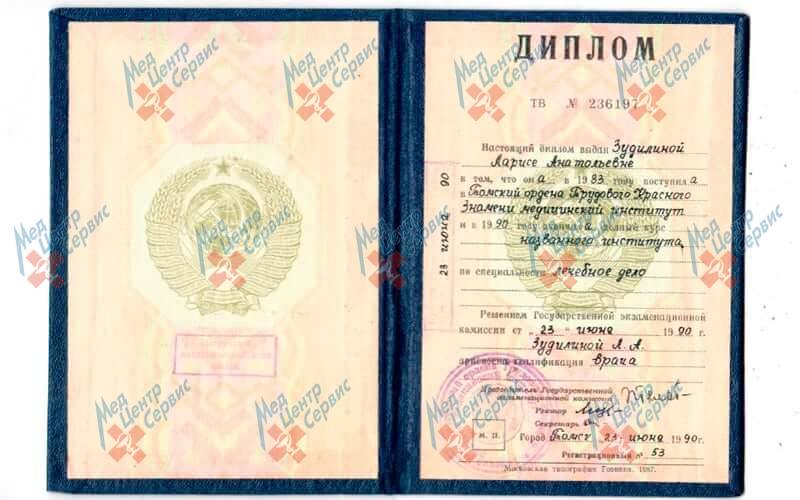 ДИПЛОМ
ТВ № 236197
Настоящий диплом выдан Зудилиной
Ларисе Анатольевне
в том, что он а в 1983 году поступил а
в Томский ордена Трудового Красного
Знамени медицинский институт
и в 1990 году окончил а полный курс
названного института
по специальности лечебное дело
Решением Государственной экзаменационной
комиссии от „23“ июня 1990 г.
Зудилиной Л. А.
присвоена квалификация врача
Председатель Государственной
экзаменационной комиссии
Ректор
Секретарь
М. П.
Город Томск 23 июня 1990 г.
Регистрационный № 53
Московская типография Гознака. 1987.
23 июня 90
Мед Центр Сервис